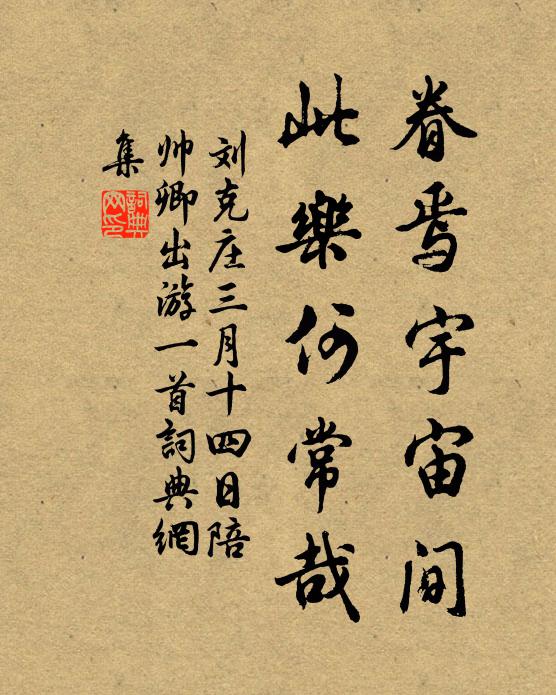 眷焉宇宙间
此樂何常哉
刘克庄三月十四日陪
帅卿出游一首詞典網
集
詞典网印